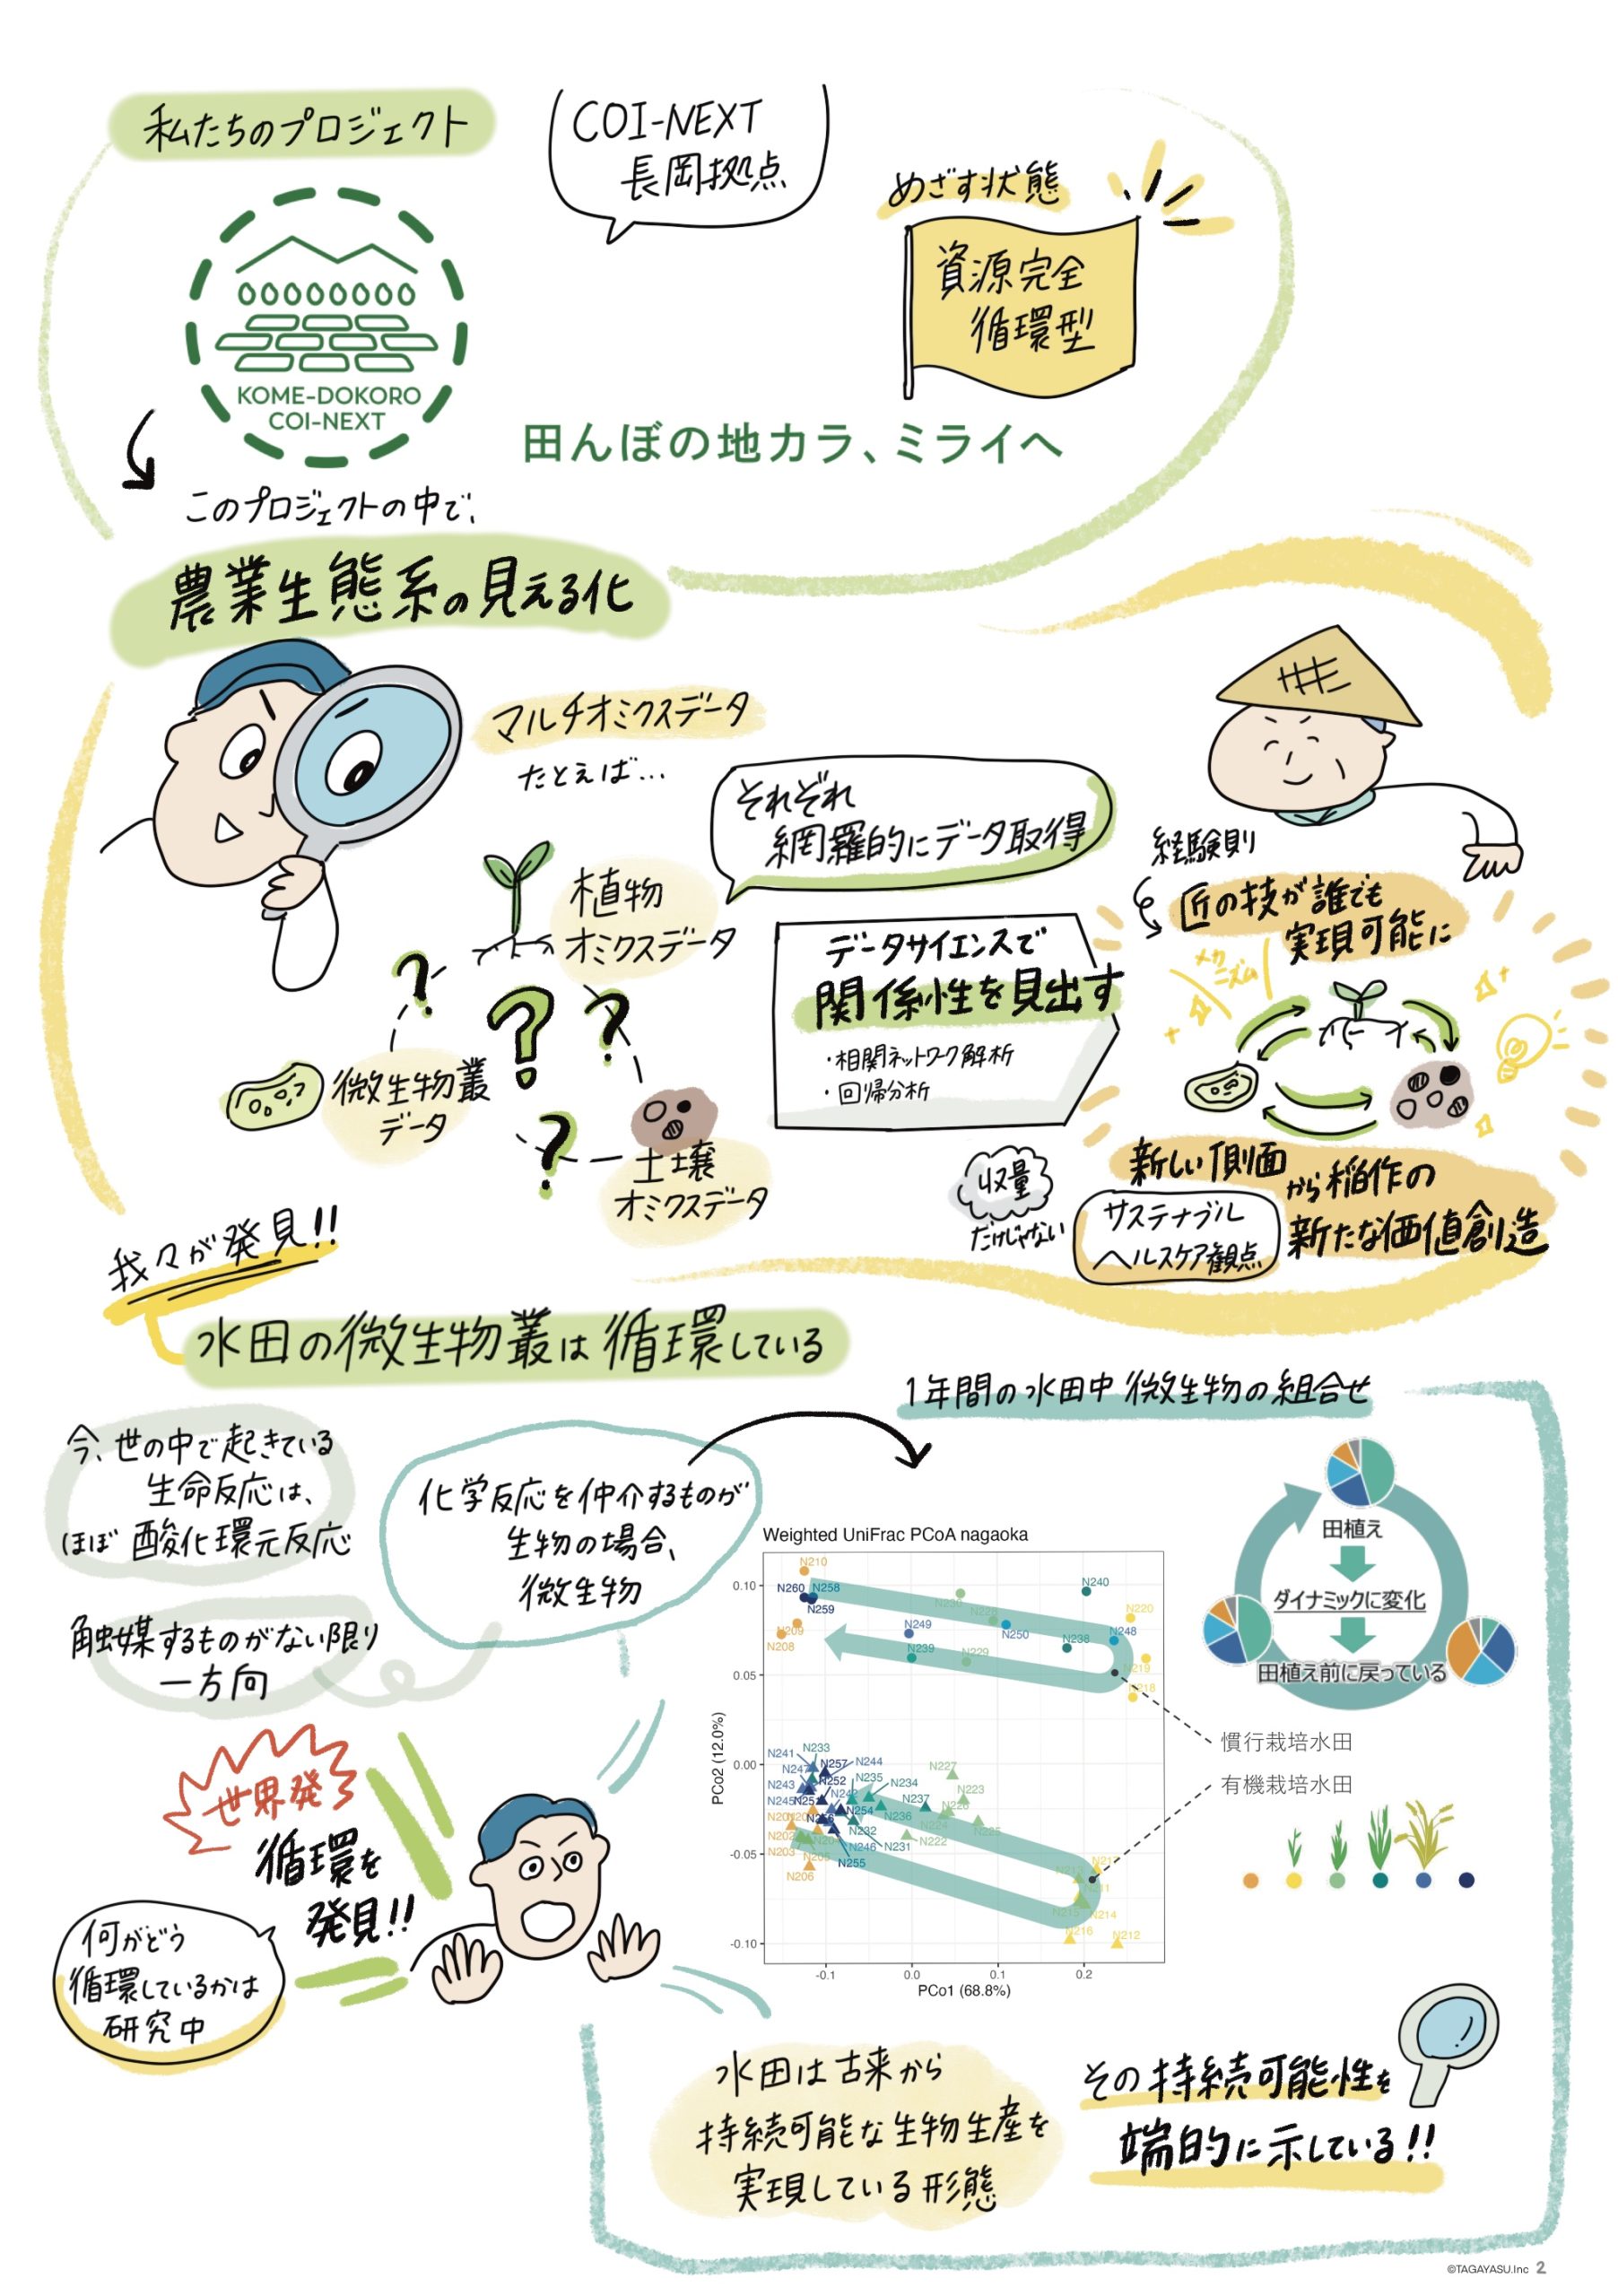 私たちのプロジェクト
COI-NEXT
長岡拠点
めざす状態
資源完全
循環型
KOME-DOKORO
COI-NEXT
田んぼの地カラ、ミライへ
このプロジェクトの中で、
農業生態系の見える化
マルチオミクスデータ
たとえば…
それぞれ
網羅的にデータ取得
植物
オミクスデータ
?
?
?
?
微生物叢
データ
土壌
オミクスデータ
データサイエンスで
関係性を見出す
・相関ネットワーク解析
・回帰分析
経験則
匠の技が誰でも
実現可能に
メカニズム
収量
だけじゃない
新しい側面
から稲作の
サステナブル
ヘルスケア観点
新たな価値創造
我々が発見!!
水田の微生物叢は循環している
今、世の中で起きている
生命反応は、
ほぼ酸化還元反応
触媒するものがない限り
一方向
化学反応を仲介するものが
生物の場合、
微生物
1年間の水田中微生物の組合せ
田植え
ダイナミックに変化
田植え前に戻っている
Weighted UniFrac PCoA nagaoka
PCo2 (12.0%)
0.10
0.05
0.00
-0.05
-0.10
-0.1
0.0
0.1
0.2
PCo1 (68.8%)
N210
N260
N258
N259
N209
N208
N249
N239
N229
N250
N240
N220
N248
N238
N219
N218
N241
N233
N257
N244
N243
N252
N235
N234
N227
N223
N245
N254
N236
N237
N232
N231
N222
N246
N255
N202
N203
N206
N214
N216
N212
慣行栽培水田
有機栽培水田
世界発
循環を
発見!!
何がどう
循環しているかは
研究中
水田は古来から
持続可能な生物生産を
実現している形態
その持続可能性を
端的に示している!!
©TAGAYASU.Inc 2